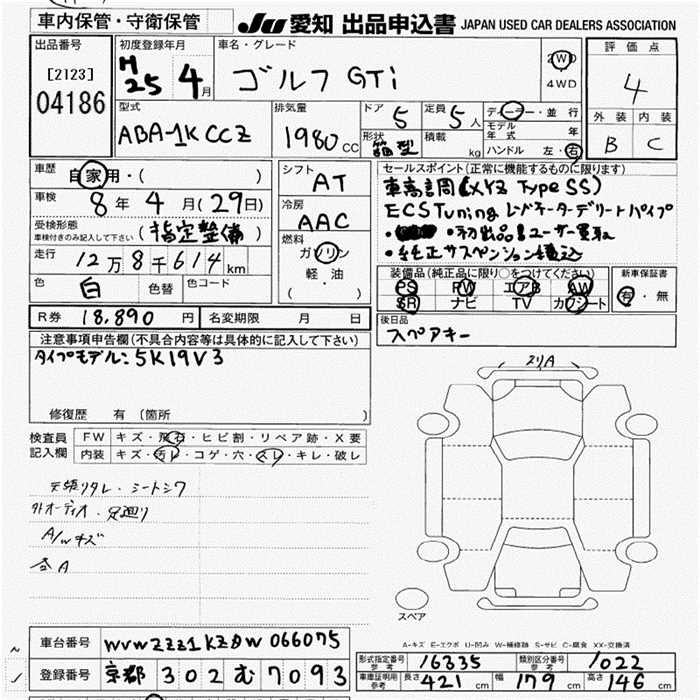 車内保管・守衛保管
JU 愛知 出品申込書 JAPAN USED CAR DEALERS ASSOCIATION
出品番号
[2123]
04186
初度登録年月
H25 4月
車名・グレード
ゴルフ GTi
2WD
4WD
評価点
4
外装 内装
B C
型式
ABA-1KCCZ
排気量
1980cc
ドア 5
定員 5人
形状 箱型
積載 kg
ディーラー・並行
モデル年式 年
ハンドル 左・右
車歴 自家用・( )
車検 8年 4月 (29日)
受検形態
車検付きのみ記入して下さい (指定整備)
走行 12万8千614km
色 白 色替 色コード
シフト
AT
冷房
AAC
燃料
ガソリン
軽・油
( )
セールスポイント(正常に機能するものに限ります)
車高調(XYZ Type SS)
ECS Tuning レゾネーターデリートパイプ
・初出品!ユーザー買取
・純正サスペンション積込
装備品(純正品に限り○をつけてください)
PS PW エアB AW
SR ナビ TV カワシート
新車保証書
有・無
R券 18,890円 名変期限 月 日
後日品
スペアキー
注意事項申告欄(不具合内容等は具体的に記入して下さい)
タイプモデル:5K19V3
修復歴 有 (箇所
検査員記入欄
FW キズ・飛石・ヒビ割・リペア跡・X要
内装 キズ・汚レ・コゲ・穴・スレ・キレ・破レ
天張りタレ・シートシワ
外オーディオ・足廻り
A/Wキズ
各A
スリA
スペア
A-キズ E-エクボ U-凹み W-補修跡 S-サビ C-腐食 XX-交換済
車台番号 WVWZZZ1KZDW066075
登録番号 京都 302 む 7093
形式指定番号 参考 16335 類別区分番号 参考 1022
車庫証明用 参考 長さ 421cm 幅 179cm 高さ 146cm